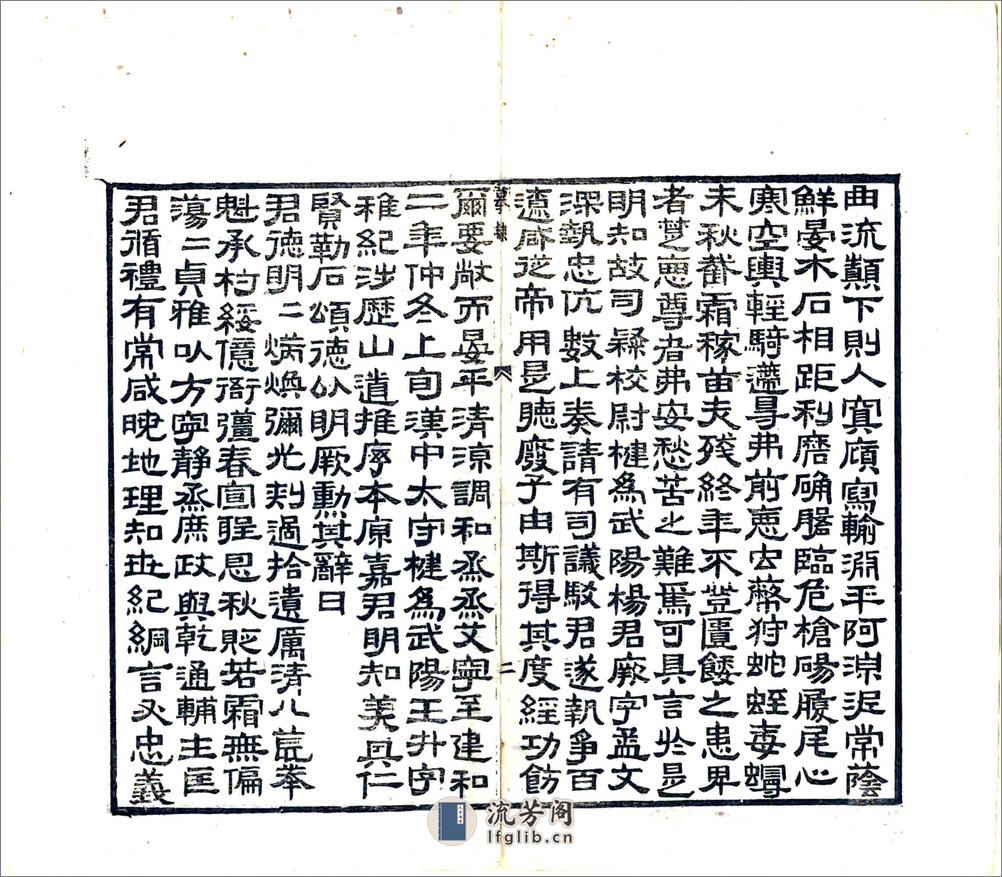 曲流顛下則入寘𢈔寫輸淵平阿淖泥常蔭
鮮晏木石相距利磨确磐臨危槍碭履尾心
寒空輿輕騎遰㝵弗前惡虫幣狩蛇蛭毒蟃
未秋截霜稼苗夭殘終年不登匱餧之患卑
者楚惡尊者弗安愁苦之難焉可具言於是
明知故司隸校尉楗為武陽楊君厥字孟文
深執忠伉數上奏請有司議駮君遂執爭百
遼咸從帝用是聽廢子由斯得其度經功飭
摹隸
二
爾要敞而晏平清涼調和烝烝艾寧至建和
二年仲冬上旬漢中太守楗為武陽王升字
稚紀涉歷山道推序本原嘉君明知美其仁
賢勒石頌德以明厥勳其辭曰
君德明二炳煥彌光刺過拾遺厲清八荒奉
魁承杓綏億衙彊春宣聖恩秋貶若霜無偏
蕩二貞雅以方寧靜烝庶政與乾通輔主匡
君循禮有常咸曉地理知世紀綱言必忠義
流芳阁
lfglib.cn